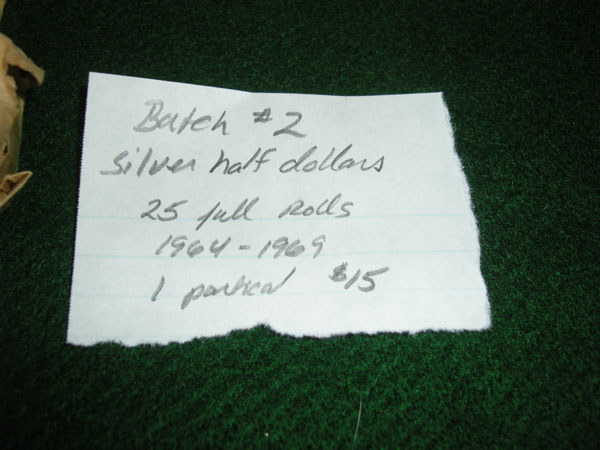 Batch #2
silver half dollars
25 full Rolls
1964-1969
1 partical $15